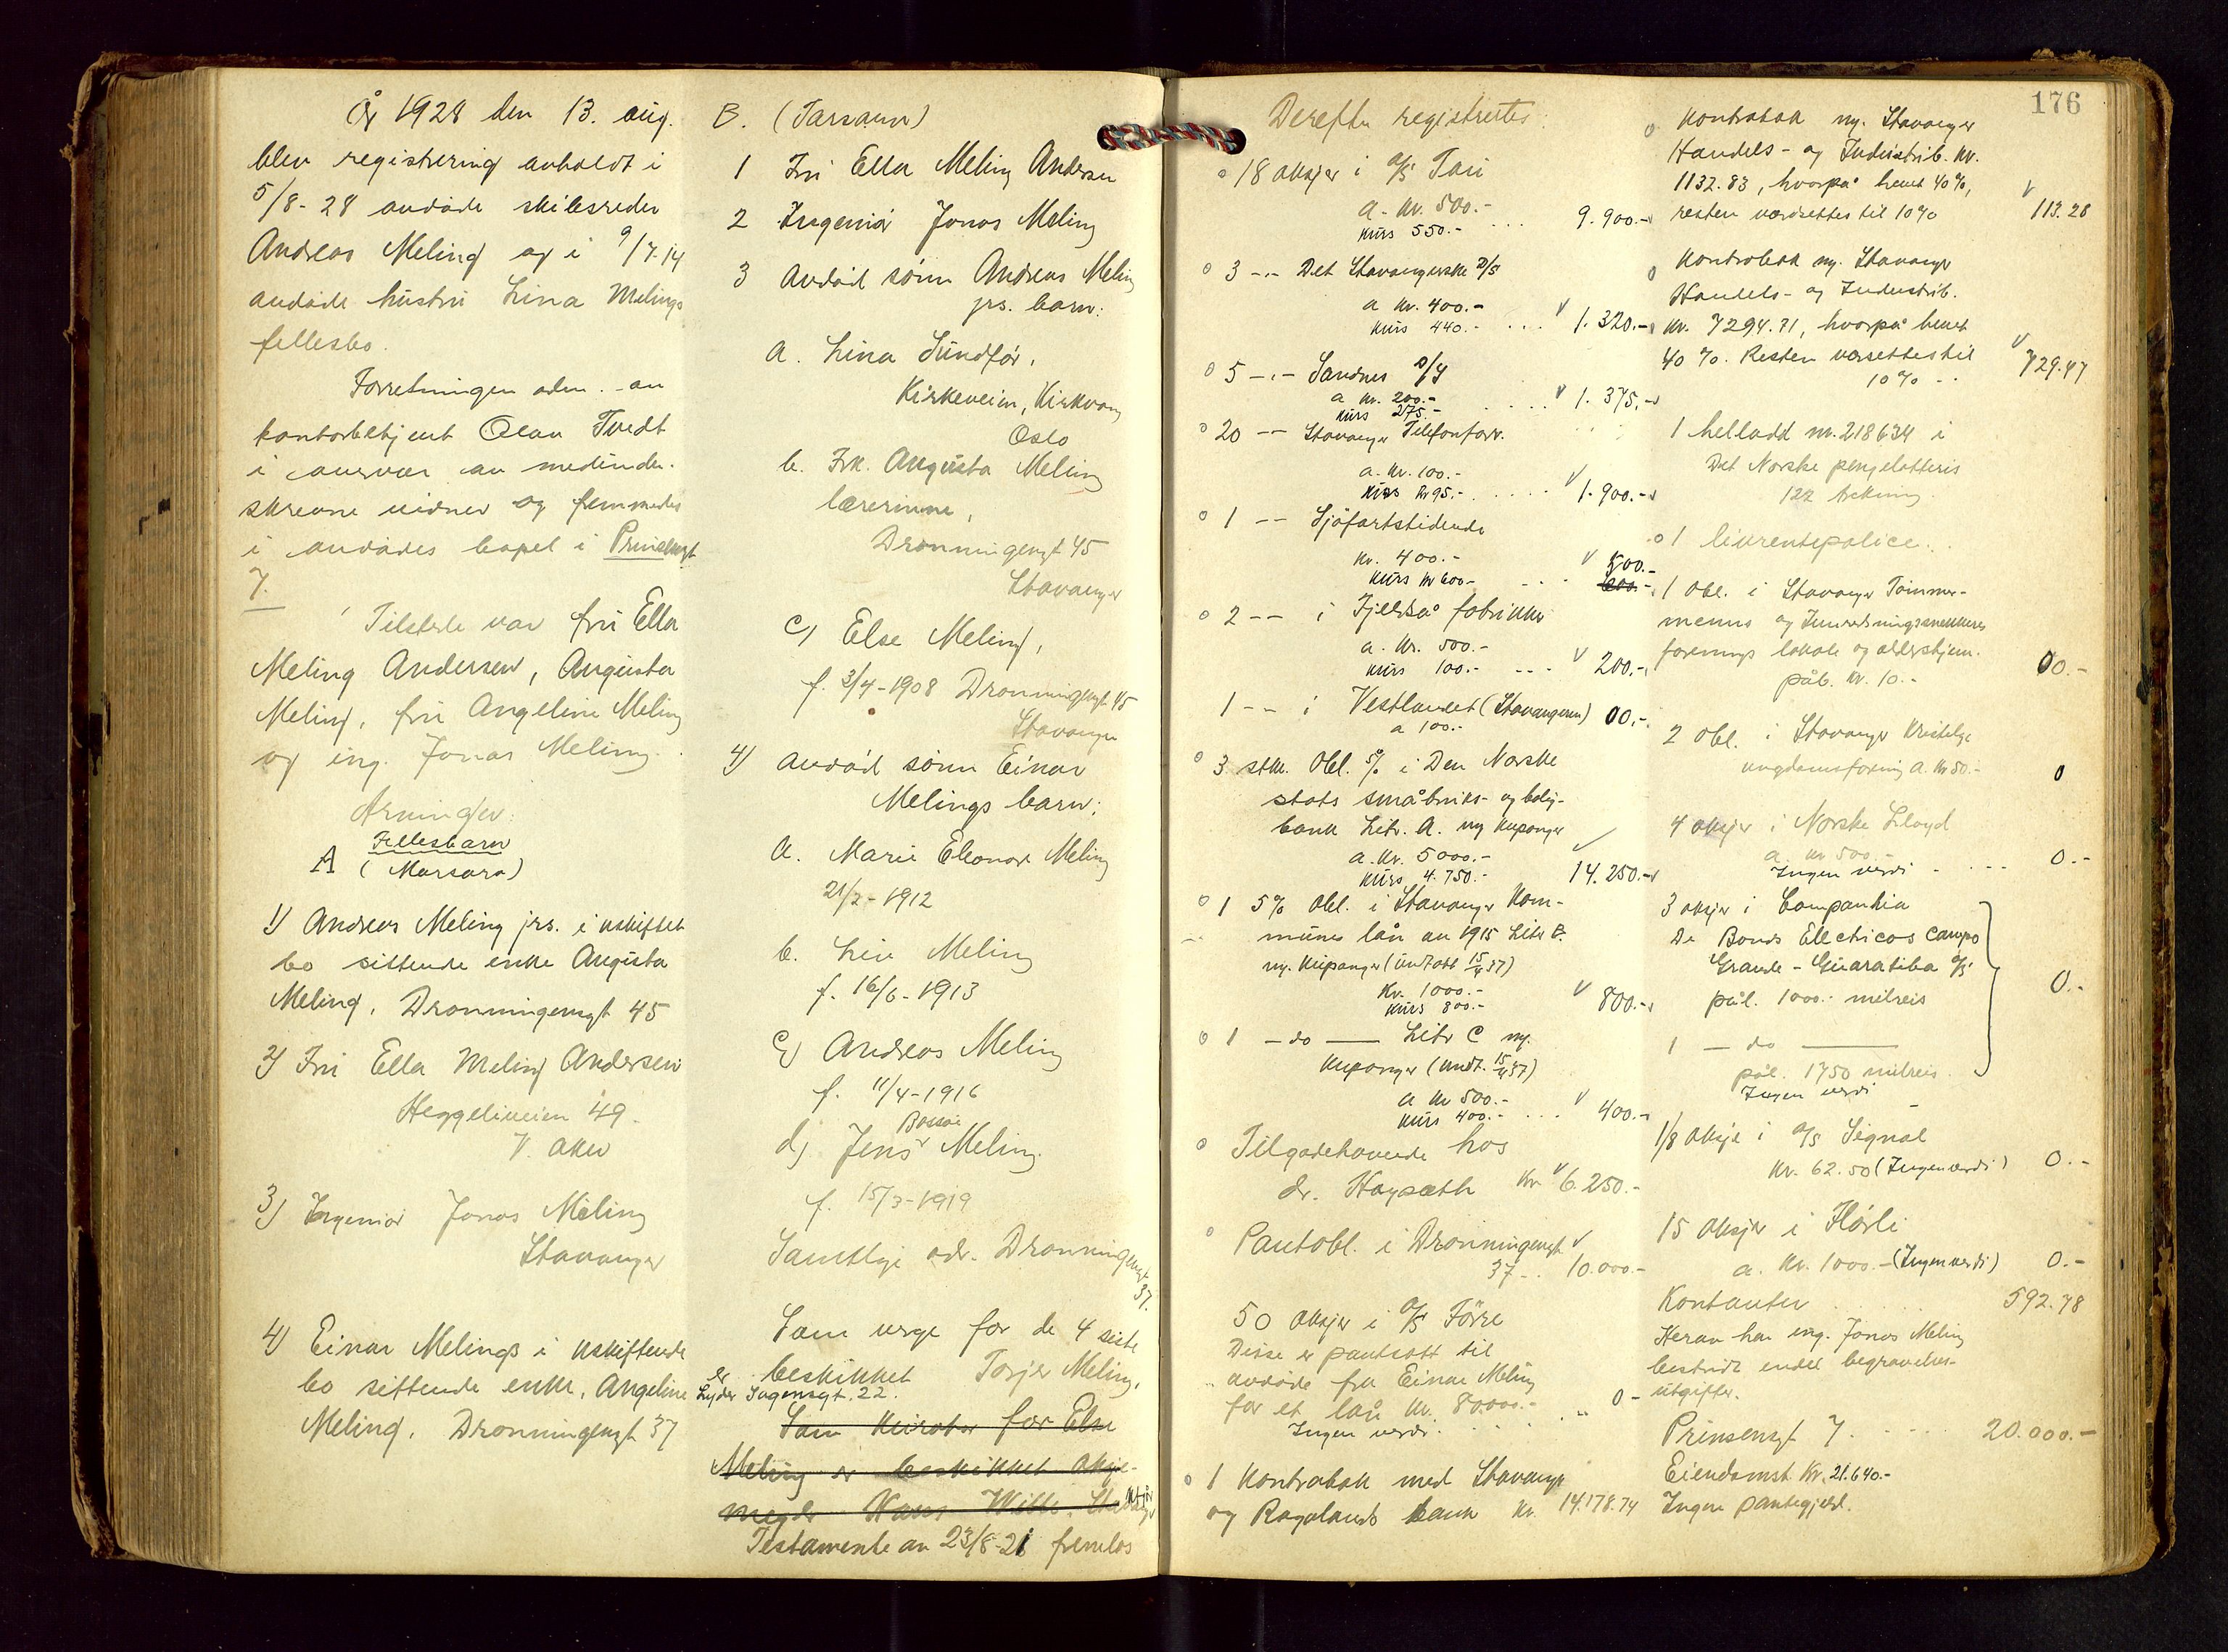 År 1928 den 13. aug.
blev registrering avholdt i
5/8-28 avdøde skibsreder
Andreas Meling og i 9/7.14
avdøde hustru Lina Melings
fellesbo.
Forretningen adm. av
kontorbetjent Olav Tvedt
i overvær av medunder-
skrevne vidner og fremmedes
i avdødes bopel i Prinsensgt
7.
Tilstede var fru Ella
Meling Andersen, Augusta
Meling, fru Angeline Meling
og ing. Jonas Meling.
Arvinger:
Fellesbarn
A (Morsarv)
1) Andreas Meling jrs. i uskiftet
bo sittende enke Augusta
Meling, Dronningensgt 45
2) Fru Ella Meling Andersen
Heggeliveien 49.
V. Aker
3) Ingeniør Jonas Meling
Stavanger
4) Einar Melings i uskiftende
bo sittende enke, Angeline
Meling, Dronningensgt 37
B. (Farsarv)
1 Fru Ella Meling Andersen
2 Ingeniør Jonas Meling
3 Avdød sønn Andreas Meling
jrs. barn:
a. Lina Sundfør,
Kirkeveien, Kirkvang
Oslo
b. Frk. Augusta Meling
lærerinne,
Dronningensgt 45
Stavanger
c) Else Meling,
f. 3/4-1908 Dronningensgt 45
Stavanger
4) Avdød sønn Einar
Melings barn:
a. Marie Eleonore Meling
21/2-1912
b. Liv Meling
f. 16/6-1913
c) Andreas Meling
f. 11/4-1916
d) Jens Meling.
f. 15/3-1919
Samtlige adr. Dronningensgt
37.
Som verge for de 4 siste
er beskikket Torjer Meling,
22.
Som kurator for Else
Meling er beskikket aksje-
megler
Testamente av 23/8-21 fremlos
176
Derefter registrertes:
18 aksjer i A/S Tau
a. kr. 500.-
kurs 550.- ... 9.900.-
3 -,- Det Stavangerske D/S
a kr. 400.-
kurs 440.- ... 1.320.-
5 -,- Sandnes D/S
a kr. 200.-
kurs 275.- 1.375.-
20 -- Stavanger Telefonforr.
a. kr. 100.-
kurs kr 95.- ..... 1.900.-
1 -- Sjøfartstidende
kr. 400.-
kurs kr 600.- ... 500.-
600.-
2 -- i Fjeldså fabrikker
a. kr. 500.-
kurs 100.- --- 200.-
1 -- i Vestlandet (Stavangeren) 00.-
a 100.-
3 stk. Obl. 5% i Den Norske
stats småbruks- og bolig-
bank Litr. A. m/ kuponger
a. kr. 5000.-
kurs 4.750.- 14.250.-
1 5% obl. i Stavanger Kom-
munes lån av 1915 Litr B.
m. kuponger (undtatt 15/4 37)
Kr. 1000.-
kurs 800.- 800.-
1 - do - Litr C m.
kuponger (undt. 15/4 37)
a kr 500.-
kurs 400.- ... 400.-
Tilgodehavende hos
dr. Kr 6.250.-
Pantobl. i Dronningensgt
37 .. 10.000.-
50 aksjer i A/S Förre
Disse er pantsatt til
avdøde fra Einar Meling
for et lån kr. 80000.- .. 0-
Ingen verdi.
1 kontrabok med Stavanger
og Rogalands bank kr. 14.178.74
Kontrabok m. Stavanger
Handels- og Industrib. kr.
1132.83, hvorpå hevet 40%,
resten verdsettes til 10% 113.28
Kontrabok m. Stavanger
Handels- og Industrib.
kr. 7294.71, hvorpå hevet
40%. Resten verdsettes til
10% .. 729.47
1 hellodd nr. 218634 i
Det Norske pengelotteris
122 trekning.
1 livrentepolice.
1 Obl. i Stavanger Tømmer-
menns og Innredningssnekkeres
forenings lokale og aldershjem.
pål. kr. 10.- 00.-
2 obl. i Stavanger Kristelige
ungdomsforening a. kr 50.- 0
4 aksjer i Norske Lloyd
a. kr 500.-
Ingen verdi - ... 0.-
3 aksjer i Companhia
De Bonds Electricos Campo
Grande - Guaratiba A/S
pål. 1000.- milreis 0.-
1 - do -
pål. 1750 milreis.
Ingen verdi
1/8 aksje i A/S Signal
kr. 62.50 (Ingen verdi) 0.-
15 aksjer i Flörli
a. kr. 1000.- (Ingen verdi) 0.-
Kontanter ... 592.78
Herav har ing. Jonas Meling
bestridt endel begravelses-
utgifter.
Prinsensgt 7. .... 20.000.-
Eiendomst. kr. 21.640.-
Ingen pantegjeld.